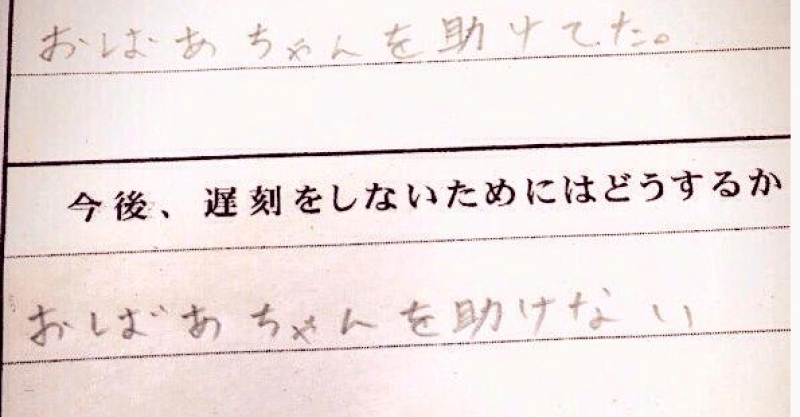 おばあちゃんを助けてた。
今後、遅刻をしないためにはどうするか
おばあちゃんを助けない